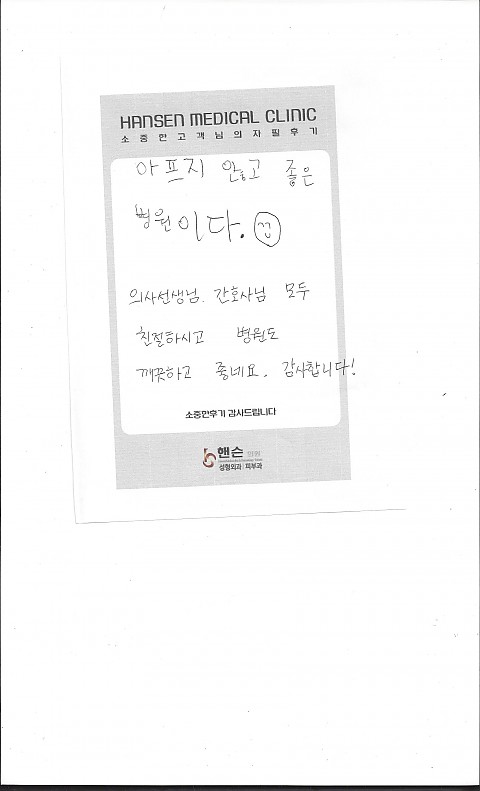 HANSEN MEDICAL CLINIC
소중한고객님의자필후기
아프지 않고 좋은
병원이다.
의사선생님. 간호사님 모두
친절하시고 병원도
깨끗하고 좋네요. 감사합니다!
소중한후기 감사드립니다
핸슨 의원
성형외과 피부과